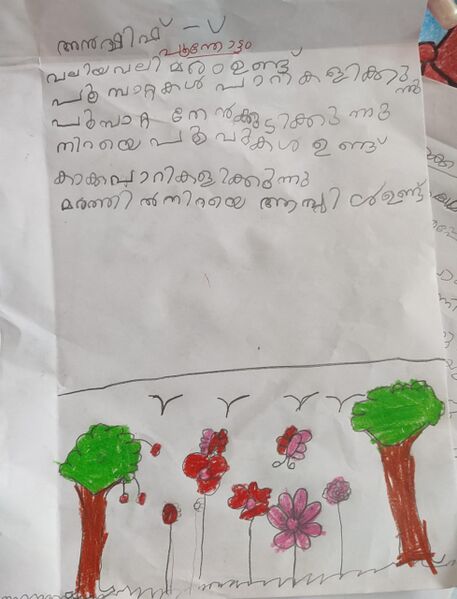 അൻഷിഷ് - V
പൂന്തോട്ടം
വലിയവലി മരം ഉണ്ട്
പൂമ്പാറ്റകൾ പാറികളിക്കുന്നു
പൂമ്പാറ്റ തേൻകുടിക്കുന്നു
നിറയെ പൂവുകൾ ഉണ്ട്
കാക്കപാറികളിക്കുന്നു
മരത്തിൽ നിറയെ ആപ്പിൾ ഉണ്ട്